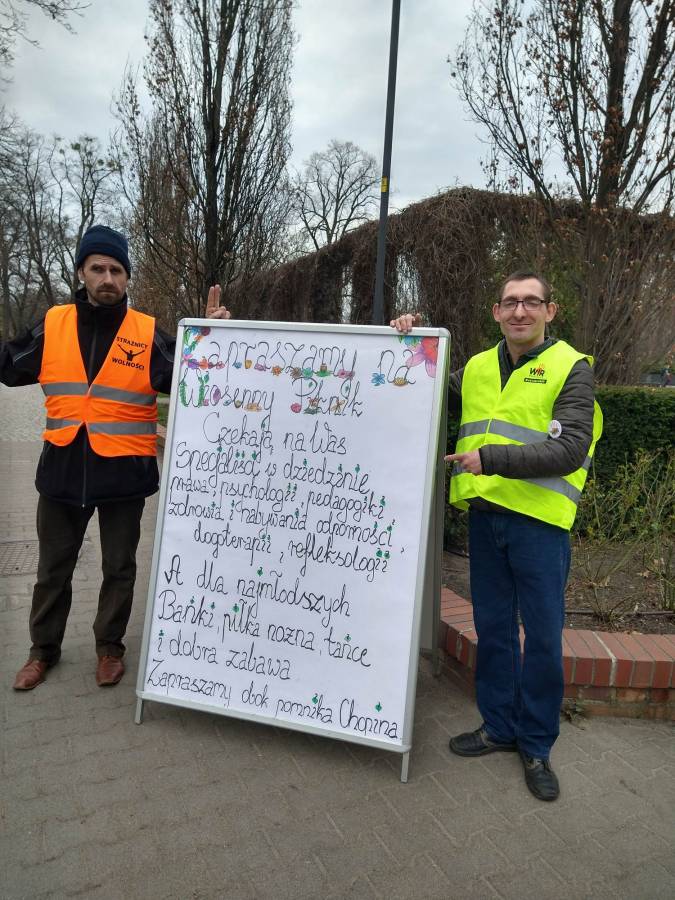 STRAŻNICY
WOLNOŚCI
WIR
Zapraszamy na
Wiosenny Piknik
Czekają na Was
Specjaliści w dziedzinie
prawa, psychologii, pedagogiki
zdrowia i nabywania odporności,
dogoterapii i refleksologii
A dla najmłodszych
Bańki, piłka nożna, tańce
i dobra zabawa
Zapraszamy obok pomnika Chopina